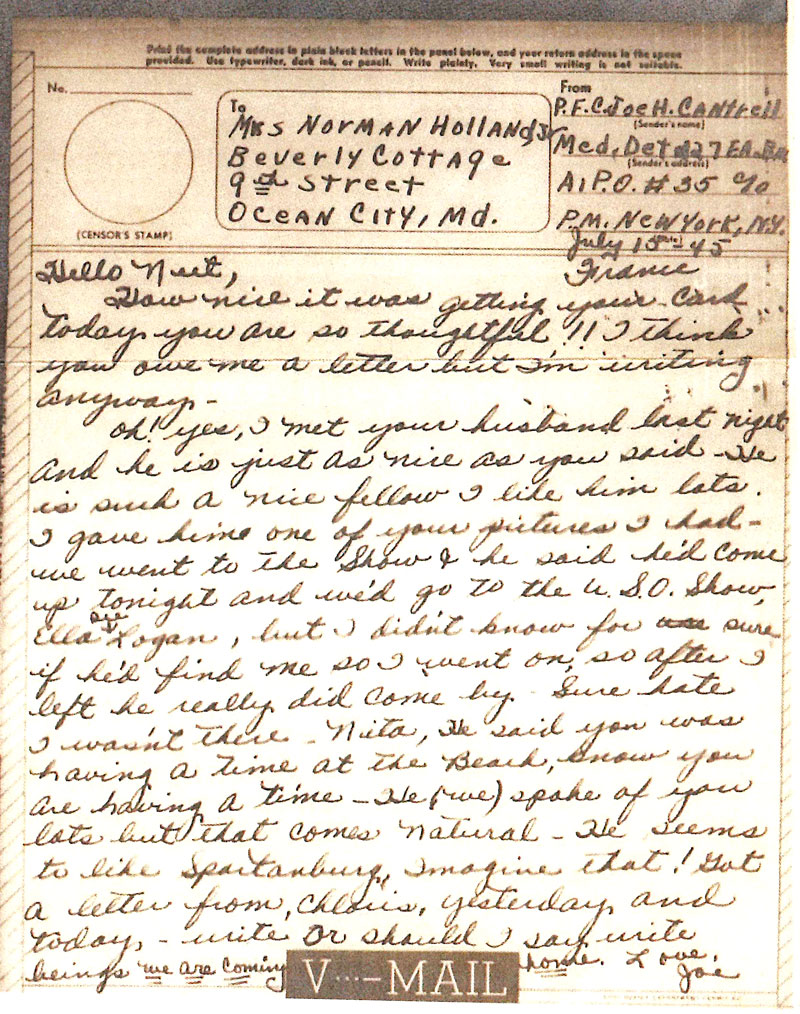 Print the complete address in plain block letters in the panel below, and your return address in the space
provided. Use typewriter, dark ink, or pencil. Write plainly. Very small writing is not suitable.
No.
(CENSOR'S STAMP)
To
Mrs Norman Holland, Jr
Beverly Cottage
9th Street
Ocean City, Md.
From
P.F.C. Joe H. Cantrell
(Sender's name)
Med. Det. 127 EA. Bn
(Sender's address)
A.P.O. # 35 c/o
P.M. New York, N.Y.
July 15 - 45
France
Hello Neet,
How nice it was getting your card
today you are so thoughtful!! I think
you owe me a letter but I'm writing
anyway -
Oh! yes, I met your husband last night
and he is just as nice as you said - He
is such a nice fellow I like him lots.
I gave hime one of your pictures I had -
we went to the Show & he said he'd come
up tonight and we'd go to the U.S.O. Show,
see
Ella Logan, but I didn't know for sure
if he'd find me so I went on, so after I
left he really did come by - Sure hate
I wasn't there - Nita, He said you was
having a time at the Beach, know you
are having a time - He (we) spoke of you
lots but that comes natural - He seems
to like Spartanburg, imagine that! Got
a letter from, Chloris, yesterday and
today, - write or should I say write
beings we are coming home. Love,
Joe
V···—MAIL